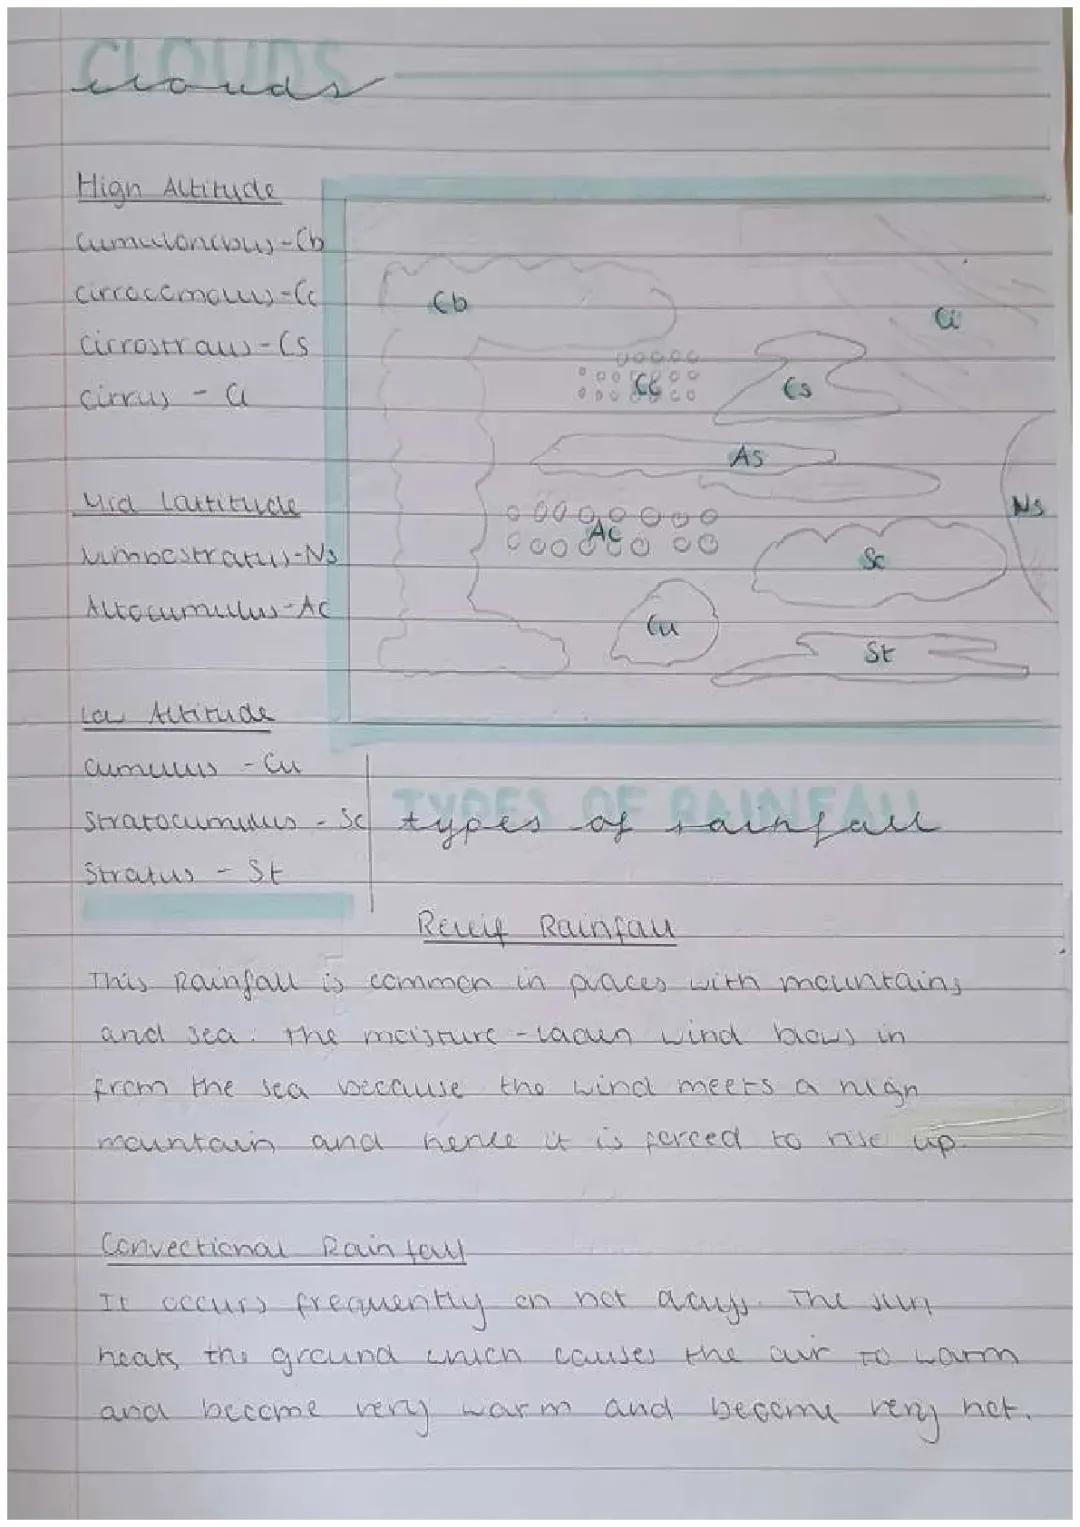 CLOUDS
clouds
High Altitude
cumulonibus - Cb
cirrocomolus - Cc
cirrostratus - Cs
cirrus - Ci
Mid Lattitude
Nimbostratus - Ns
Altocumulus - Ac
Low Altitude
cumulus - Cu
Stratocumulus - Sc
Stratus - St
Cb
Ci
Cc
Cs
As
Ns
Ac
Sc
Cu
St
TYPES OF RAINFALL
types of rainfall
Releif Rainfall
This Rainfall is common in places with mountains
and sea. The moisture-laden wind blows in
from the sea because the wind meets a high
mountain and hence it is forced to rise up.
Convectional Rainfall
It occurs frequently on hot days. The sun
heats the ground which causes the air to warm
and become very warm and become very hot.